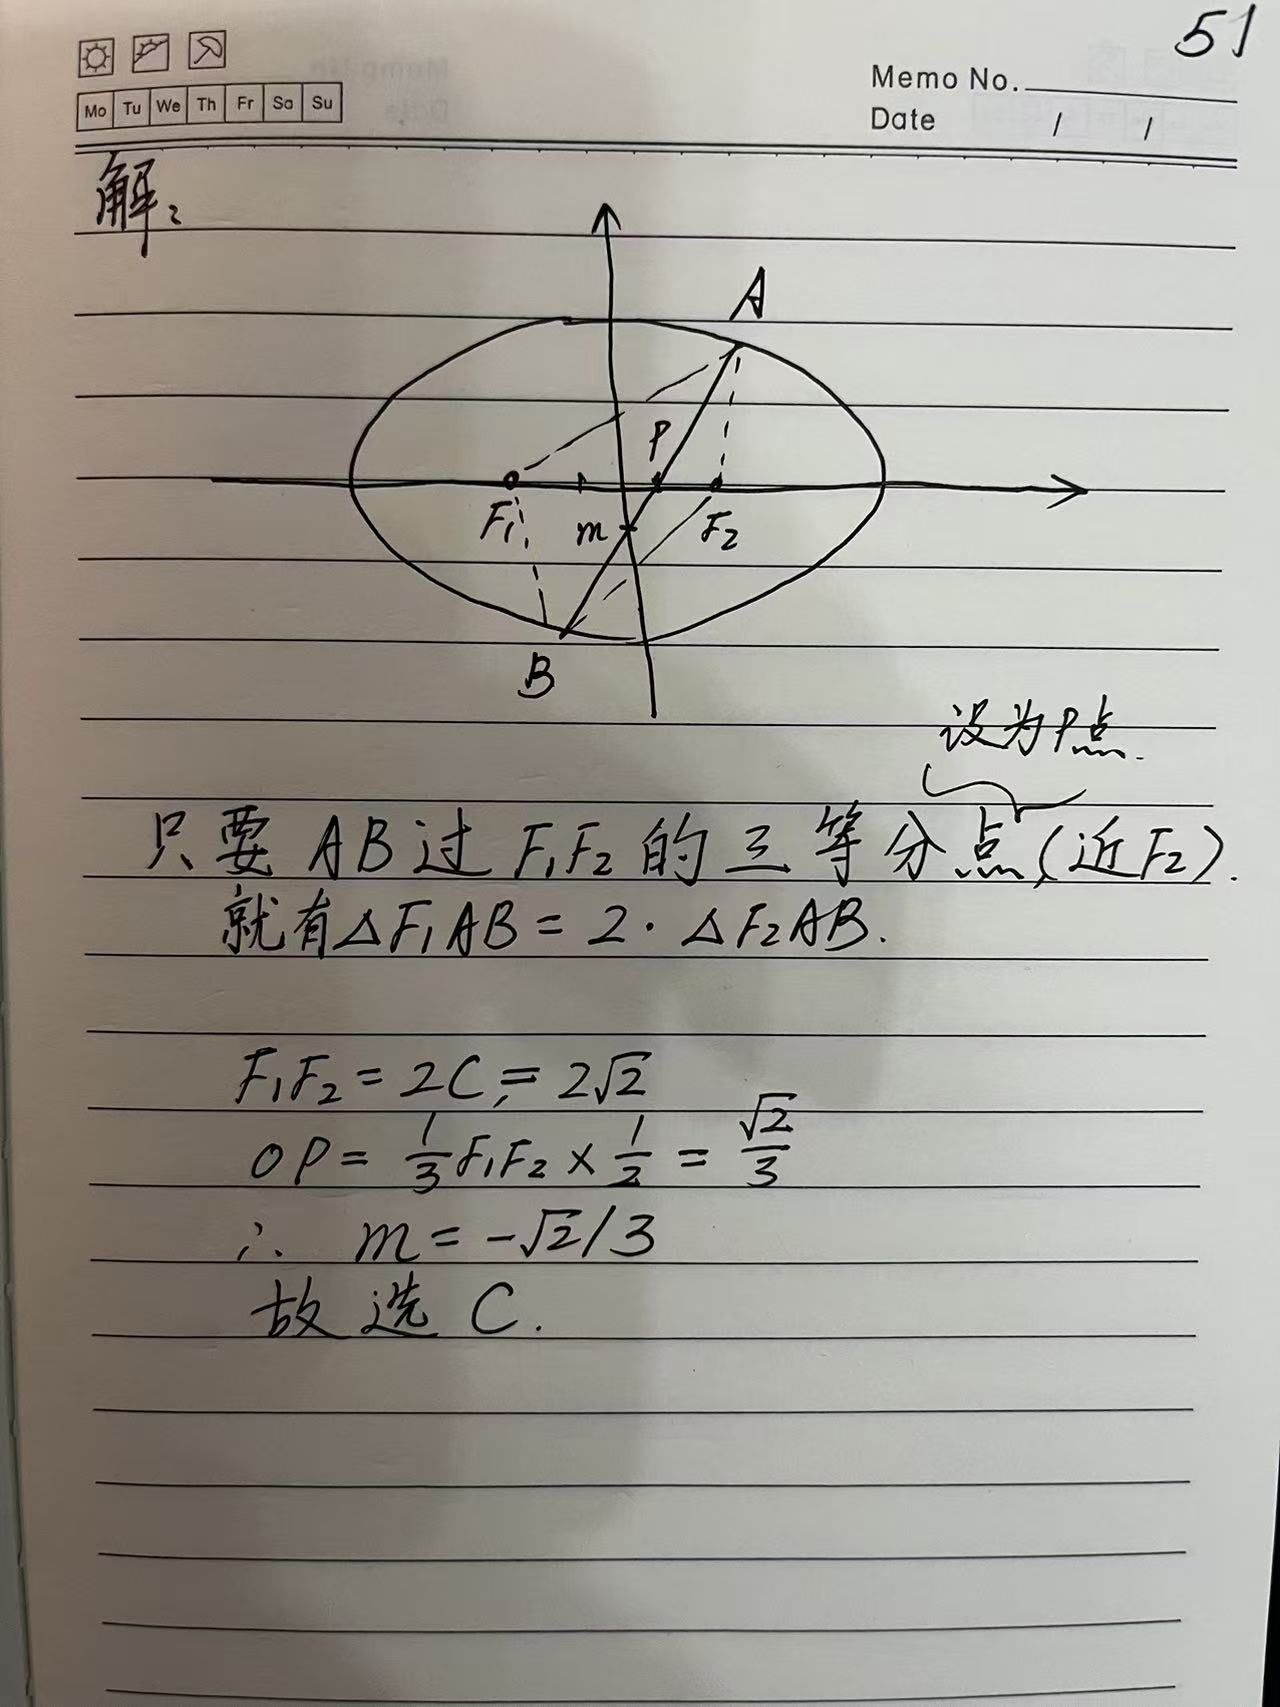 51
Mo Tu We Th Fr Sa Su
Memo No.
Date / /
解:
A
P
F₁ m F₂
B
设为P点.
只要AB过F₁F₂的三等分点(近F₂).
就有△F₁AB=2·△F₂AB.
F₁F₂=2C,=2√2
OP=1/3F₁F₂×1/2=√2/3
∴ m=-√2/3
故选C.